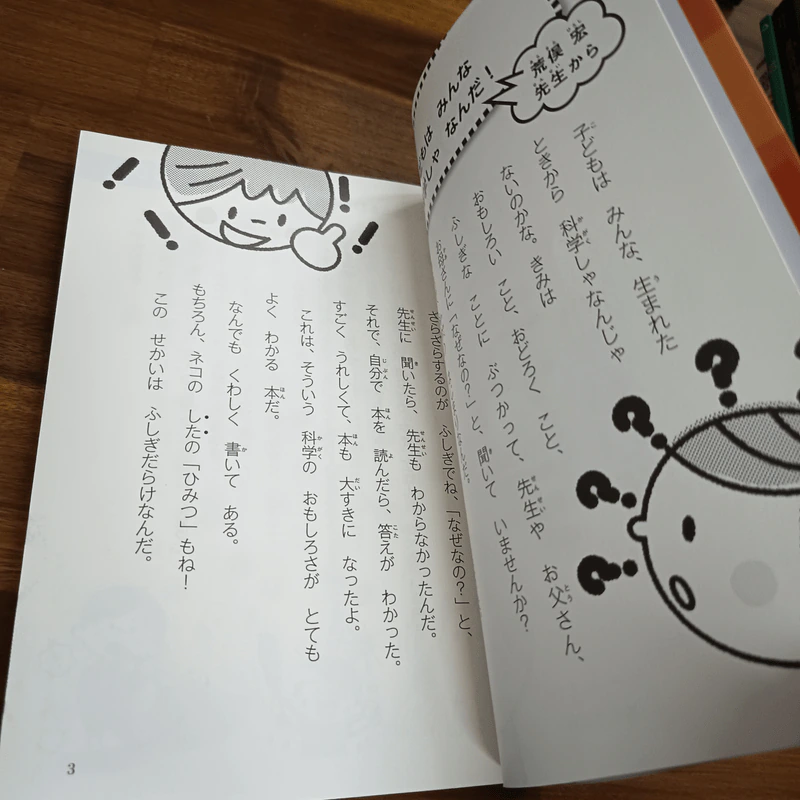 荒俣 宏
先生から
もは みんな
しゃ なんだ!
子どもは みんな、生まれた
ときから 科学しゃなんじゃ
ないのかな。きみは
おもしろい こと、おどろく こと、
ふしぎな ことに ぶつかって、先生や お父さん、
お母さんに「なぜなの?」と、聞いて いませんか?
ざらざらするのが ふしぎでね、「なぜなの?」と、
先生に 聞いたら、先生も わからなかったんだ。
それで、自分で 本を 読んだら、答えが わかった。
すごく うれしくて、本も 大すきに なったよ。
これは、そういう 科学の おもしろさが とても
よく わかる 本だ。
なんでも くわしく 書いて ある。
もちろん、ネコの したの「ひみつ」もね!
この せかいは ふしぎだらけなんだ。
3